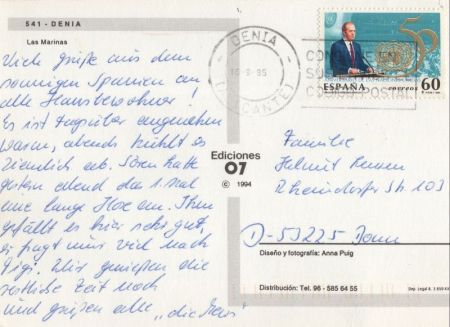 541 - DENIA
Las Marinas
Viele Grüße aus dem
sonnigen Spanien an
alle Hausbewohner!
Es ist tagsüber angenehm
warm, abends kühlt es
ziemlich ab. Sören hatte
gestern abend das 1. Mal
eine lange Hose an. Ihm
gefällt es hier sehr gut,
er fragt nur viel nach
Gigi. Wir genießen die
restliche Zeit noch
und grüßen alle
Ediciones
07
© 1994
DENIA
(ALICANTE)
50
ESPAÑA
correos
60
Familie
Helmut
Rheindorfer Str 103
D-53225 Bonn
Diseño y fotografía: Anna Puig
Distribución: Tel. 96 - 585 64 55